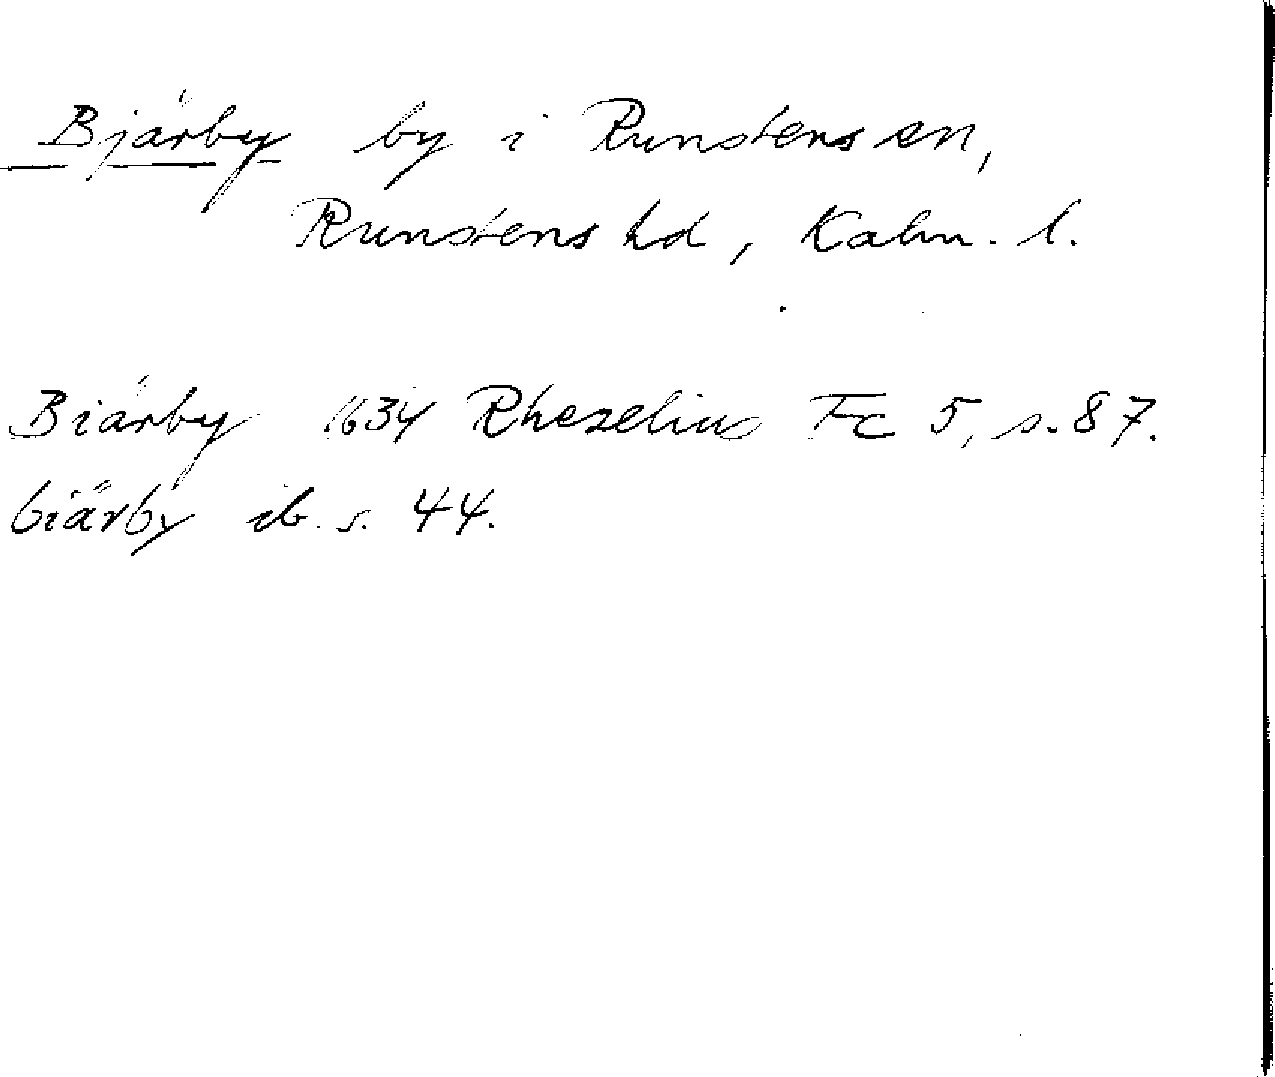 Bjärby by i Runstens sn,
Runstens hd, Kalm. l.
Biärby 1634 Rhezelius Fc 5, s. 87.
biärby ib. s. 44.